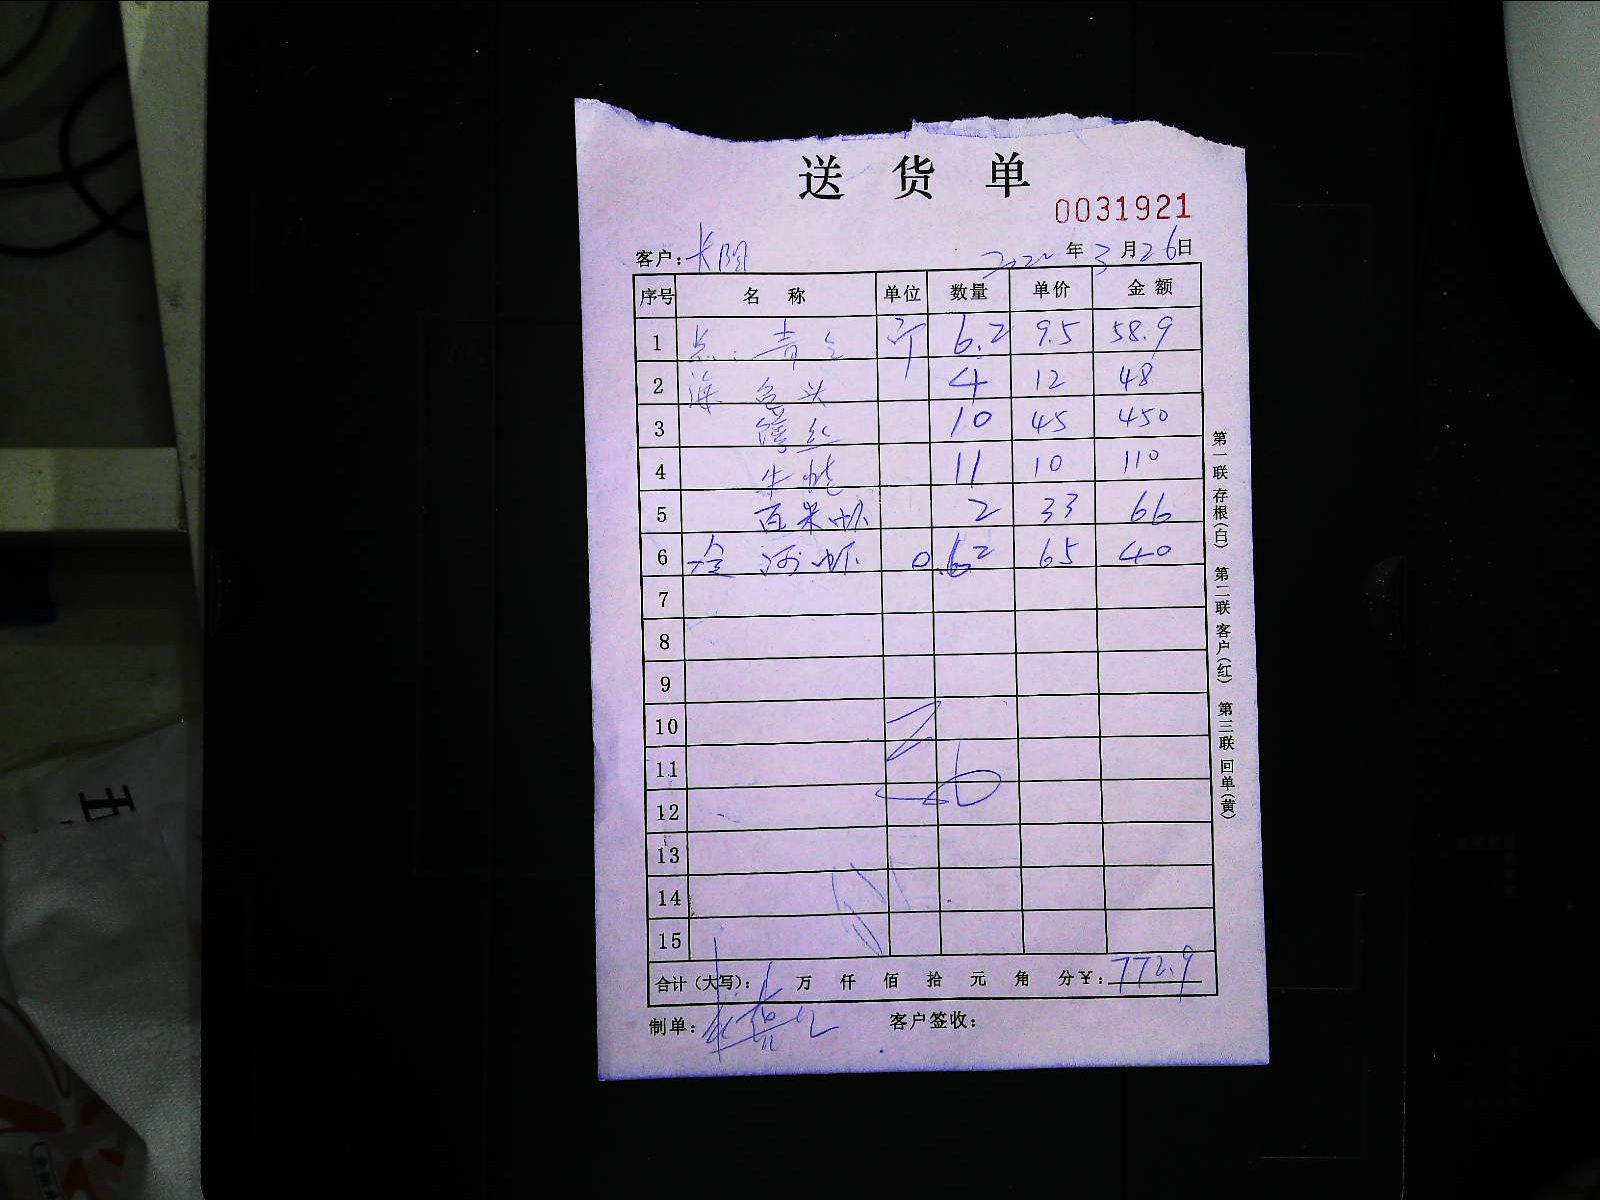 送 货 单
0031921
客户: 长阳 2022 年 3 月 26 日
序号 名 称 单位 数量 单价 金 额
1 鱼: 青 斤 6.2 9.5 58.9
2 海 包头 4 12 48
3 丝 10 45 450
4 牛蛙 11 10 110
5 百米虾 2 33 66
6 全 河虾 0.62 65 40
7
8
9
10
11
12
13
14
15
合计(大写): 万 仟 佰 拾 元 角 分¥: 772.9
制单: 客户签收:
第一联 存根(白) 第二联 客户(红) 第三联 回单(黄)
五